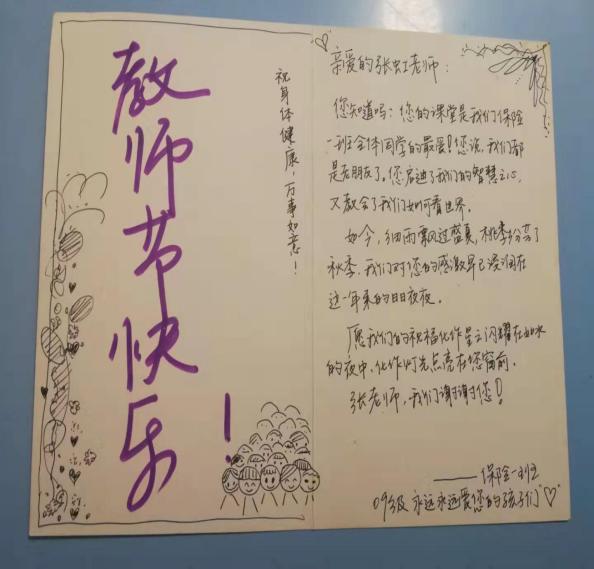 教师节快乐!
祝身体健康,万事如意!
亲爱的张虹老师:
您知道吗:您的课堂是我们保险
一班全体同学的最爱!您说,我们都
是老朋友了。您启迪了我们的智慧之心,
又教会了我们如何看世界。
如今,细雨飘过盛夏,桃李芬芳了
秋季,我们对您的感激早已浸润在
这一年来的日日夜夜。
愿我们的祝福化作星云闪耀在如水
的夜中,化作灯光点亮在您窗前。
张老师,我们谢谢您!
——保险一班
09级 永远永远爱您的孩子们